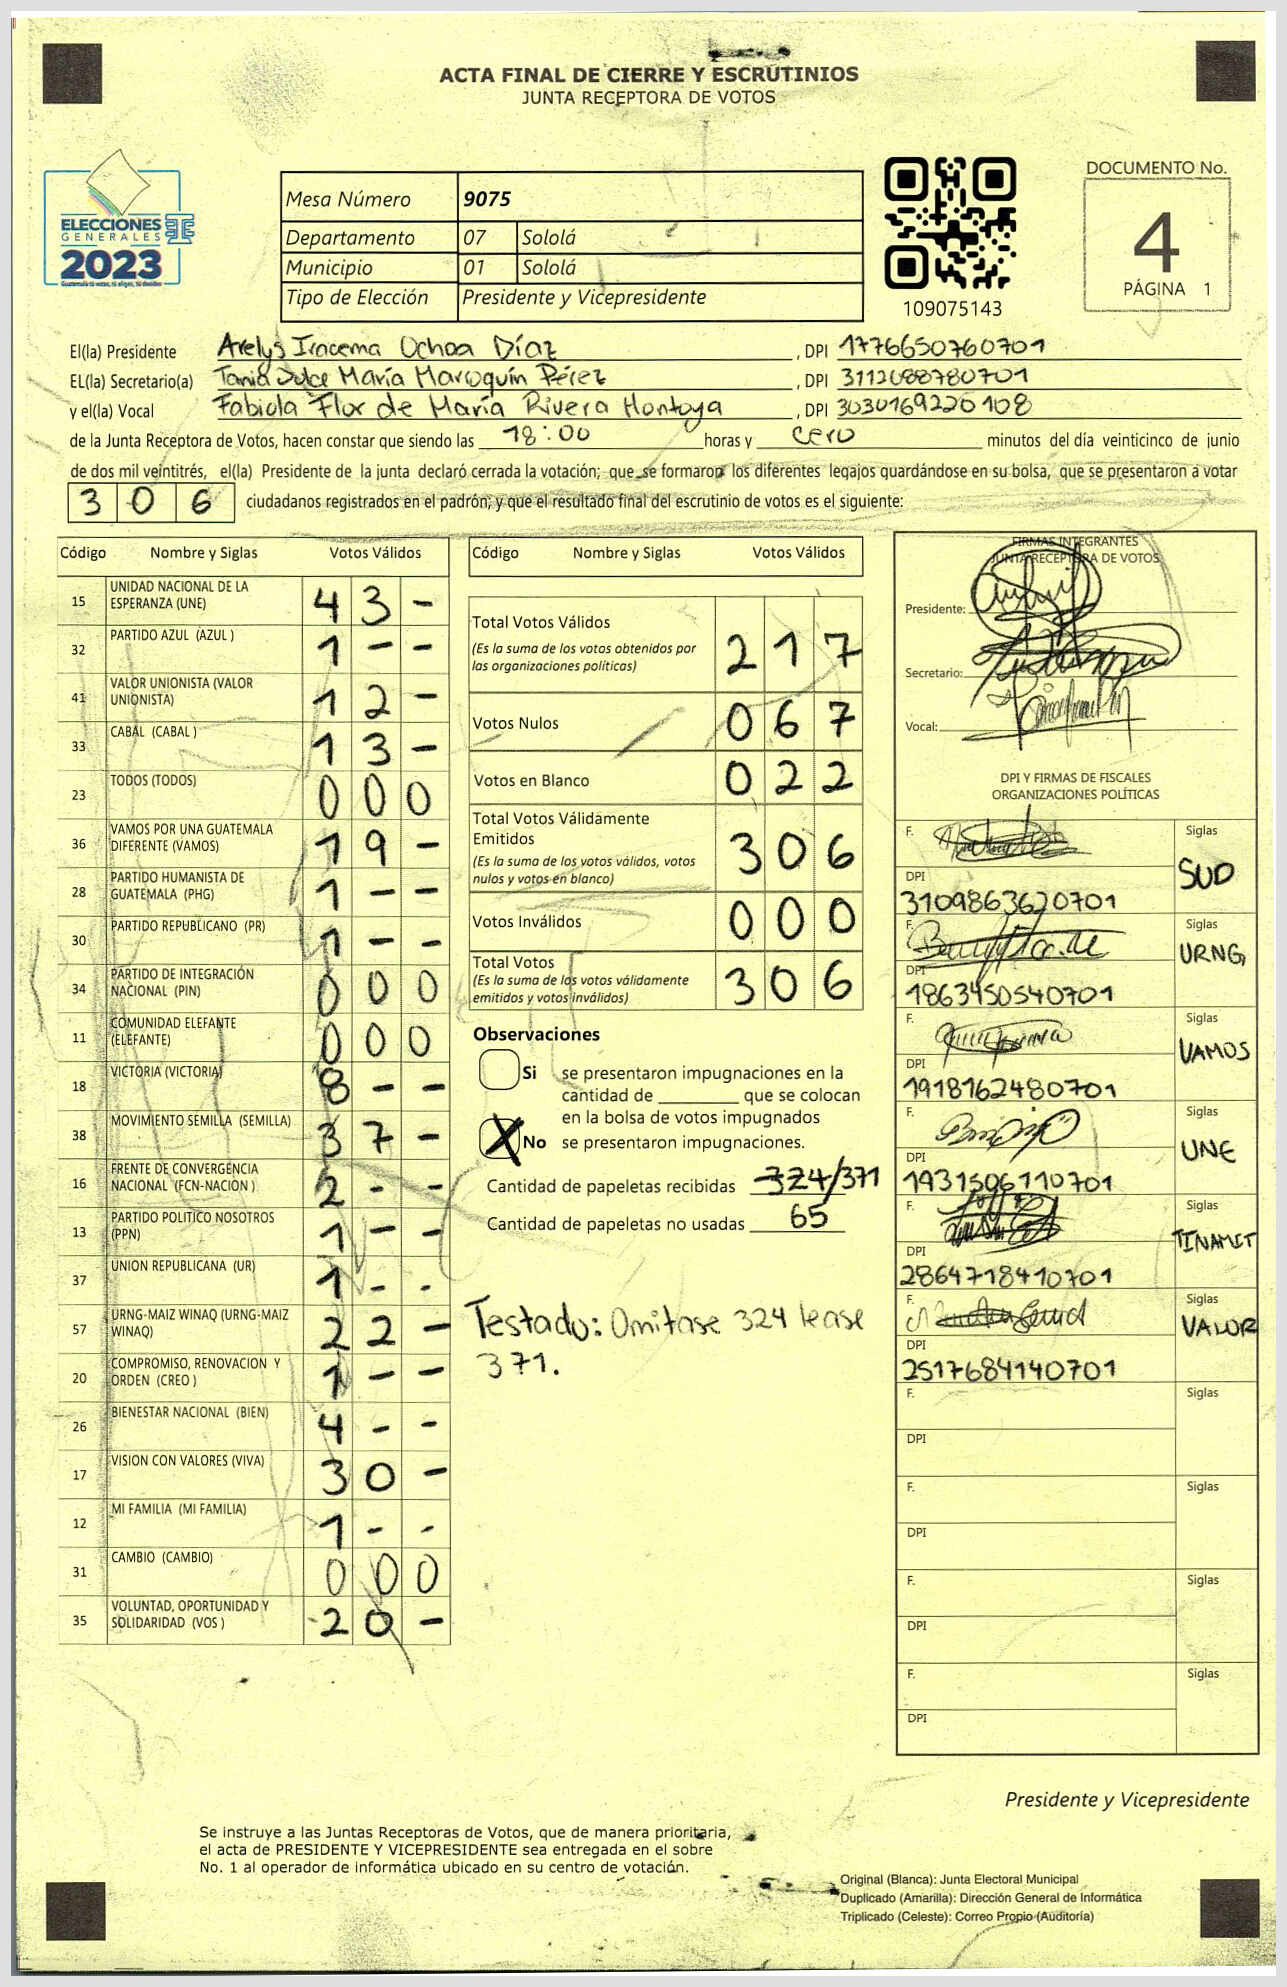 ACTA FINAL DE CIERRE Y ESCRUTINIOS
JUNTA RECEPTORA DE VOTOS
ELECCIONES
GENERALES
2023
Mesa Número 9075
Departamento 07 Sololá
Municipio 01 Sololá
Tipo de Elección Presidente y Vicepresidente
109075143
DOCUMENTO No.
4
PÁGINA 1
El(la) Presidente Arelys Iracema Ochoa Díaz , DPI 1776650760701
EL(la) Secretario(a) Tania Dulce María Maroquín Pérez , DPI 3112088780701
y el(la) Vocal Fabiola Flor de María Rivera Montoya , DPI 3030169220108
de la Junta Receptora de Votos, hacen constar que siendo las 18:00 horas y cero minutos del día veinticinco de junio
de dos mil veintitrés, el(la) Presidente de la junta declaró cerrada la votación; que se formaron los diferentes legajos guardándose en su bolsa, que se presentaron a votar
306 ciudadanos registrados en el padrón; y que el resultado final del escrutinio de votos es el siguiente:
Código Nombre y Siglas Votos Válidos
15 UNIDAD NACIONAL DE LA ESPERANZA (UNE) 43-
32 PARTIDO AZUL (AZUL ) 1--
41 VALOR UNIONISTA (VALOR UNIONISTA) 12-
33 CABAL (CABAL ) 13-
23 TODOS (TODOS) 000
36 VAMOS POR UNA GUATEMALA DIFERENTE (VAMOS) 19-
28 PARTIDO HUMANISTA DE GUATEMALA (PHG) 1--
30 PARTIDO REPUBLICANO (PR) 1--
34 PARTIDO DE INTEGRACIÓN NACIONAL (PIN) 000
11 COMUNIDAD ELEFANTE (ELEFANTE) 000
18 VICTORIA (VICTORIA) 8--
38 MOVIMIENTO SEMILLA (SEMILLA) 37-
16 FRENTE DE CONVERGENCIA NACIONAL (FCN-NACION ) 2--
13 PARTIDO POLITICO NOSOTROS (PPN) 1--
37 UNION REPUBLICANA (UR) 1--
57 URNG-MAIZ WINAQ (URNG-MAIZ WINAQ) 22-
20 COMPROMISO, RENOVACION Y ORDEN (CREO ) 1--
26 BIENESTAR NACIONAL (BIEN) 4--
17 VISION CON VALORES (VIVA) 30-
12 MI FAMILIA (MI FAMILIA) 1--
31 CAMBIO (CAMBIO) 000
35 VOLUNTAD, OPORTUNIDAD Y SOLIDARIDAD (VOS ) 20-
Código Nombre y Siglas Votos Válidos
Total Votos Válidos 217
(Es la suma de los votos obtenidos por
las organizaciones políticas)
Votos Nulos 067
Votos en Blanco 022
Total Votos Válidamente
Emitidos 306
(Es la suma de los votos válidos, votos
nulos y votos en blanco)
Votos Inválidos 000
Total Votos 306
(Es la suma de los votos válidamente
emitidos y votos inválidos)
Observaciones
Si se presentaron impugnaciones en la
cantidad de ________ que se colocan
en la bolsa de votos impugnados
X No se presentaron impugnaciones.
Cantidad de papeletas recibidas 324/371
Cantidad de papeletas no usadas 65
Testado: Omitase 324 lease
371.
FIRMAS INTEGRANTES
JUNTA RECEPTORA DE VOTOS
Presidente:
Secretario:
Vocal:
DPI Y FIRMAS DE FISCALES
ORGANIZACIONES POLÍTICAS
F. Siglas SUD
DPI 3109863620701
F. Siglas URNG,
DPI 1863450540701
F. Siglas VAMOS
DPI 1918162480701
F. Siglas UNE
DPI 1931506110701
F. Siglas TINAMIT
DPI 2864718410701
F. Siglas VALOR
DPI 2517684140701
F. Siglas
DPI
F. Siglas
DPI
F. Siglas
DPI
F. Siglas
DPI
Presidente y Vicepresidente
Se instruye a las Juntas Receptoras de Votos, que de manera prioritaria,
el acta de PRESIDENTE Y VICEPRESIDENTE sea entregada en el sobre
No. 1 al operador de informática ubicado en su centro de votación.
Original (Blanca): Junta Electoral Municipal
Duplicado (Amarilla): Dirección General de Informática
Triplicado (Celeste): Correo Propio (Auditoría)